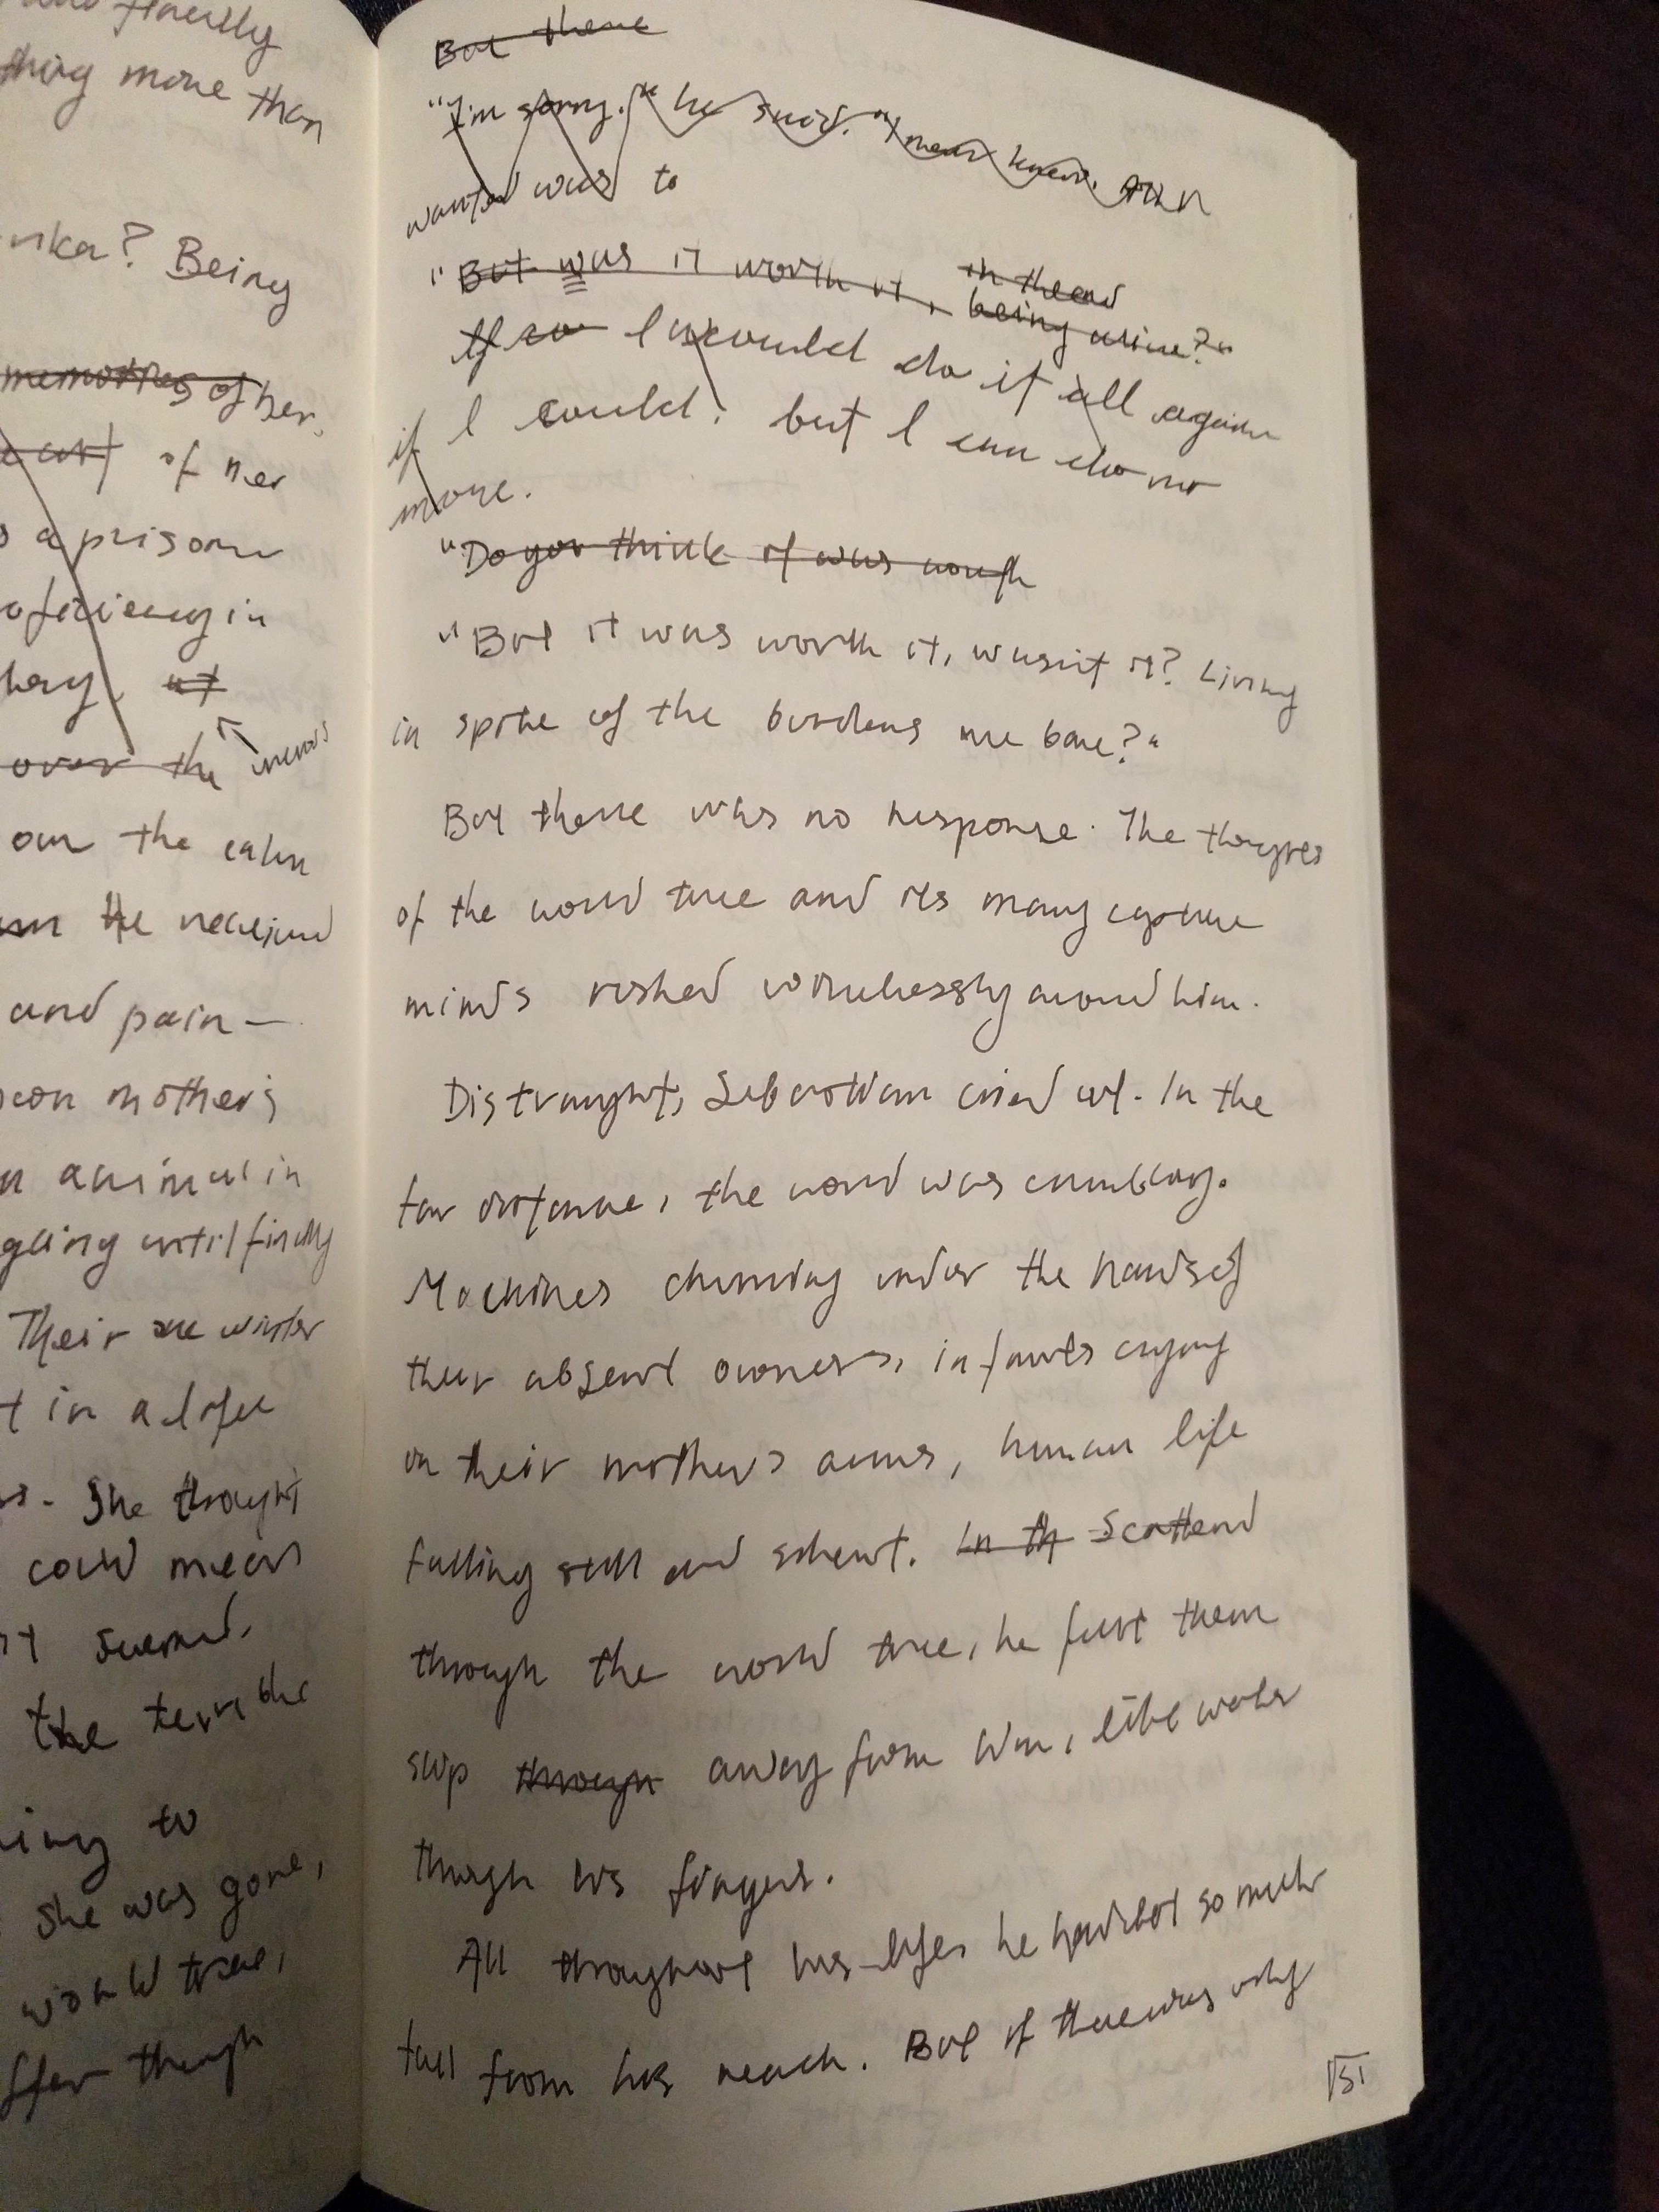 finally
thing more than
nka? Being
memories of her.
of her
a prisoner
oficiency in
over the
our the calm
the received
and pain —
mother's
animal in
until finally
Their winter
in a life
She thought
could mean
it seemed.
the terrible
to
she was gone,
world tree,
though
But there
"I'm sorry." he said. "I never knew. All I
wanted was to
"But was it worth it, in the end
being alive?"
If so I would do it all again
if I could. but I can do no
more.
"Do you think it was worth
"But it was worth it, wasn't it? Living
in spite of the burdens we bore?"
But there was no response. The thoughts
of the world tree and its many captive
minds rushed wordlessly around him.
Distraught, Sebastian cried out. In the
far distance, the world was crumbling.
Machines churning under the hands of
their absent owners, infants crying
in their mother's arms, human life
falling still and silent. In th Scattered
through the world tree, he felt them
slip through away from him, like water
through his fingers.
All throughout his life, he had let so much
fall from his reach. But if there was only
151